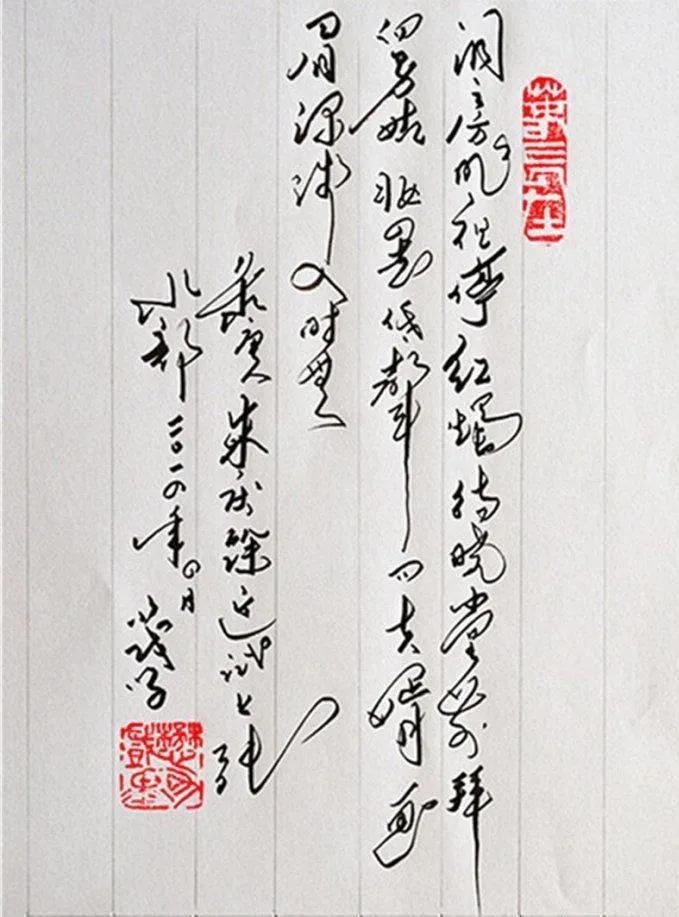 洞房昨夜停红烛待晓堂前拜
舅姑妆罢低声问夫婿画
眉深浅入时无
录唐人朱庆馀近试上张
水部二〇一四年四月